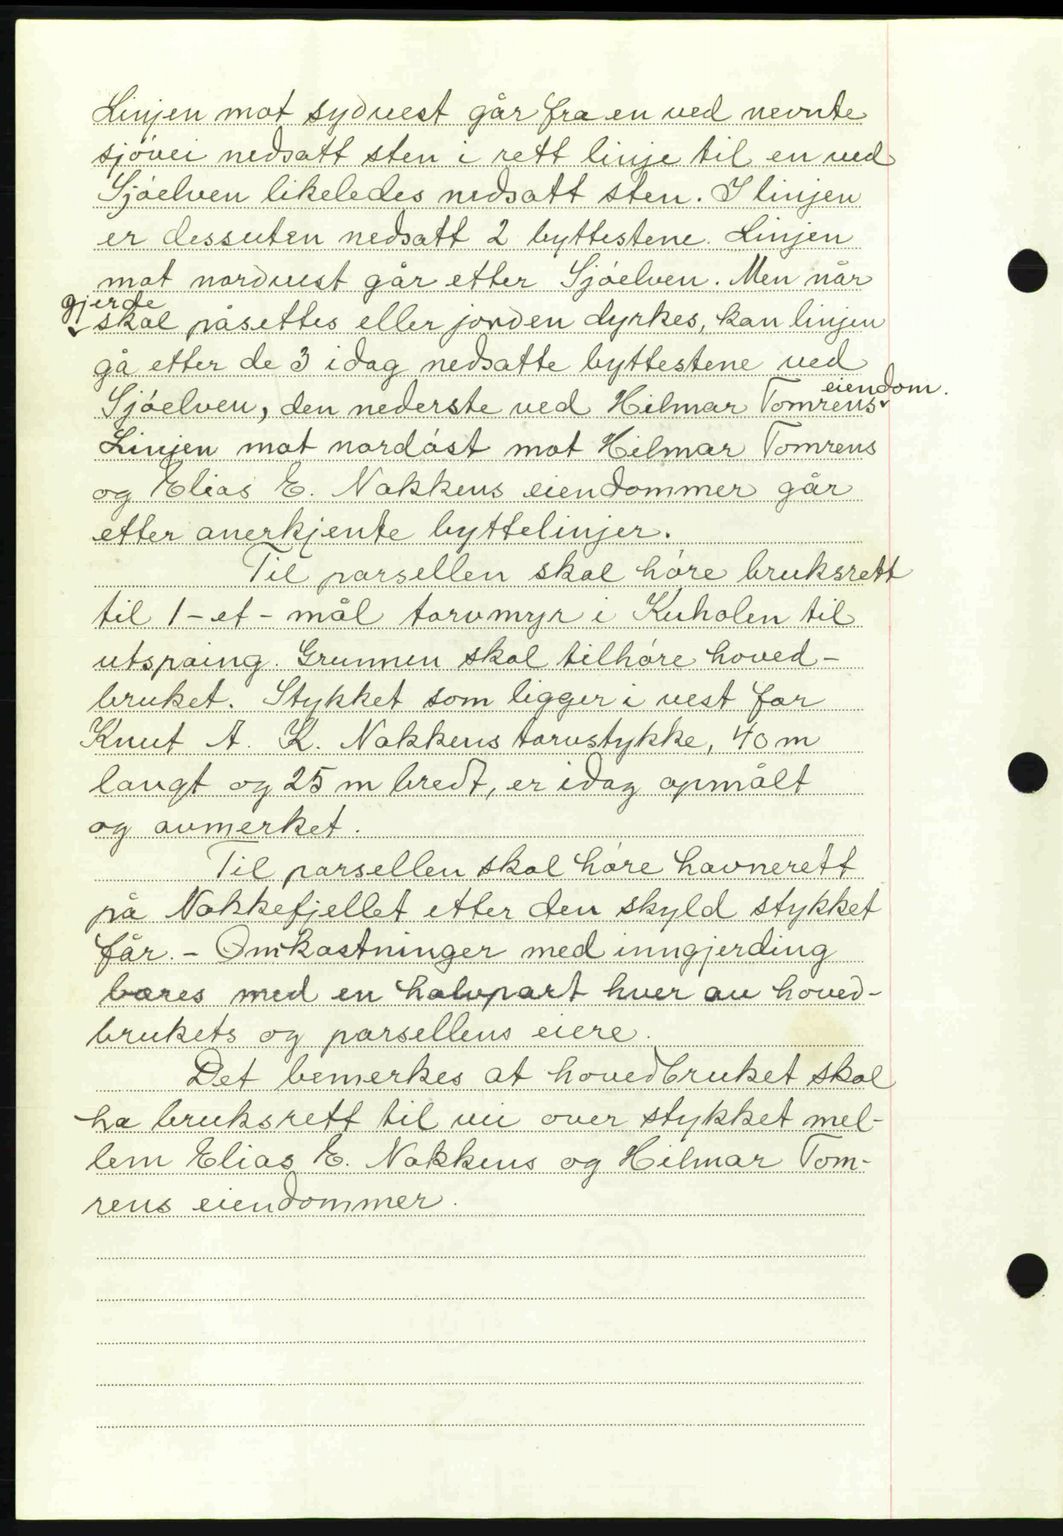 Linjen mot sydvest går fra en ved nevnte
sjövei nedsatt sten i rett linje til en ved
Sjöelven likeledes nedsatt sten. I linjen
er dessuten nedsatt 2 byttestene. Linjen
mot nordvest går etter Sjöelven. Men når
gjerde
skal påsettes eller jorden dyrkes, kan linjen
gå etter de 3 idag nedsatte byttestene ved
eiendom.
Sjöelven, den nederste ved Hilmar Tomrens
Linjen mot nordöst mot Hilmar Tomrens
og Elias E. Nakkens eiendommer går
etter anerkjente byttelinjer.
Til parsellen skal höre bruksrett
til 1 - et - mål torvmyr i Kuholen til
utspaing. Grunnen skal tilhöre hoved-
bruket. Stykket som ligger i vest for
Knut A. K. Nakkens torvstykke, 40 m
langt og 25 m bredt, er idag opmålt
og avmerket.
Til parsellen skal höre havnerett
på Nakkefjellet etter den skyld stykket
får. - Omkostninger med inngjerding
bæres med en halvpart hver av hoved-
brukets og parsellens eiere.
Det bemerkes at hovedbruket skal
ha bruksrett til vei over stykket mel-
lem Elias E. Nakkens og Hilmar Tom-
rens eiendommer.